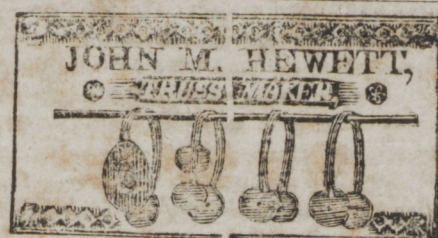 JOHN M. HEWETT,
TRUSS MAKER,